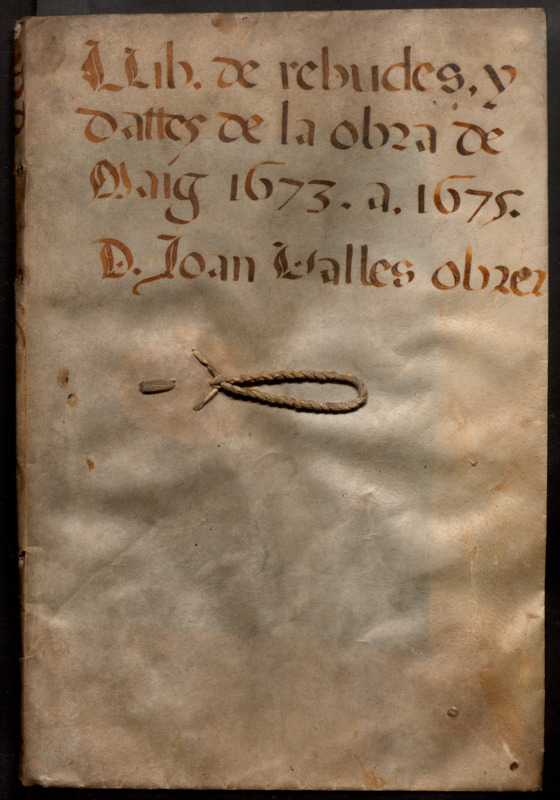 LLib. de rebudes, y
dattes de la obra de
Maig 1673. a. 1675.
D. Joan Valles obrer